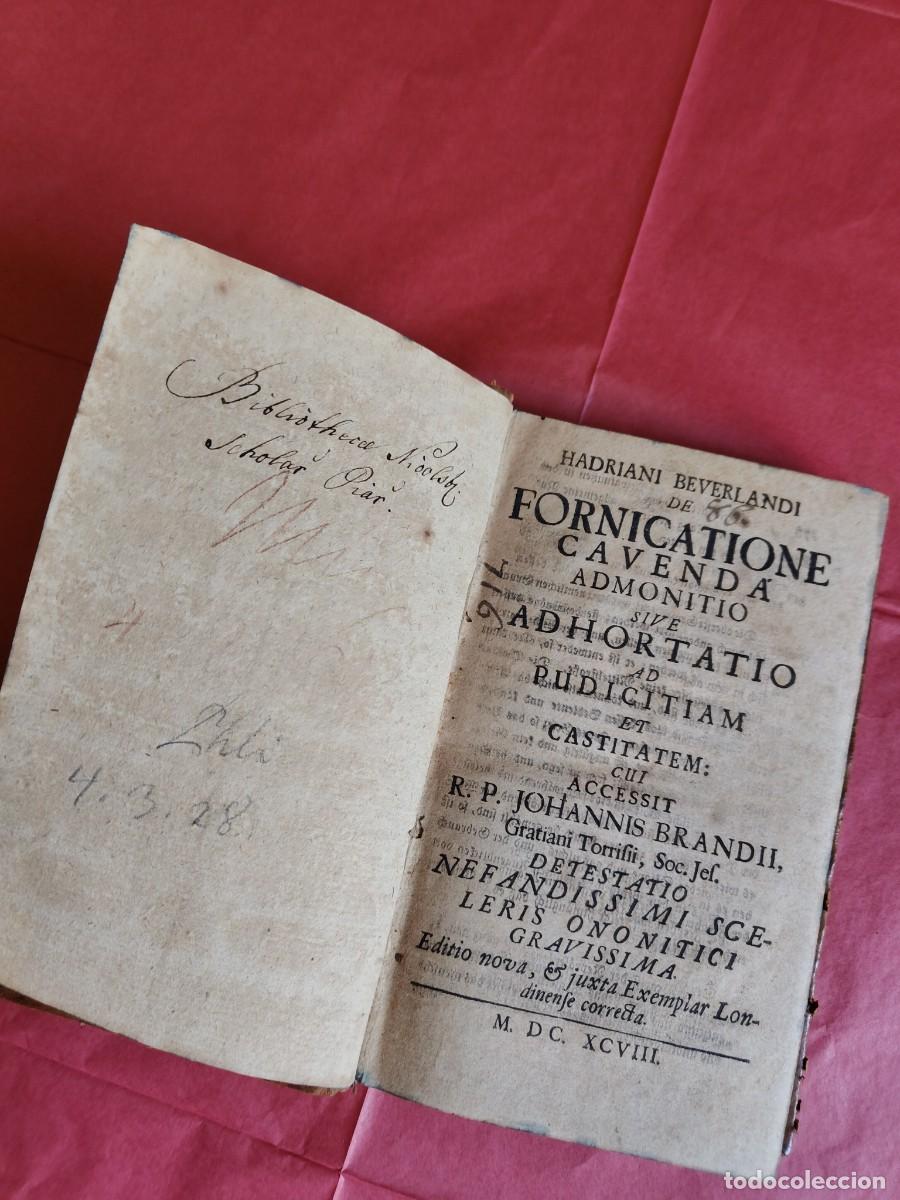 Bibliothecæ Nicolsb:
Scholar Piar.
4
4.3.28.
HADRIANI BEVERLANDI
DE
FORNICATIONE
CAVENDA
ADMONITIO
SIVE
ADHORTATIO
AD
PUDICITIAM
ET
CASTITATEM:
CUI
ACCESSIT
R. P. JOHANNIS BRANDII,
Gratiani Torrisii, Soc. Jes.
DETESTATIO
NEFANDISSIMI SCE-
LERIS ONONITICI
GRAVISSIMA.
Editio nova, & juxta Exemplar Lon-
dinense correcta.
M. DC. XCVIII.
todocoleccion